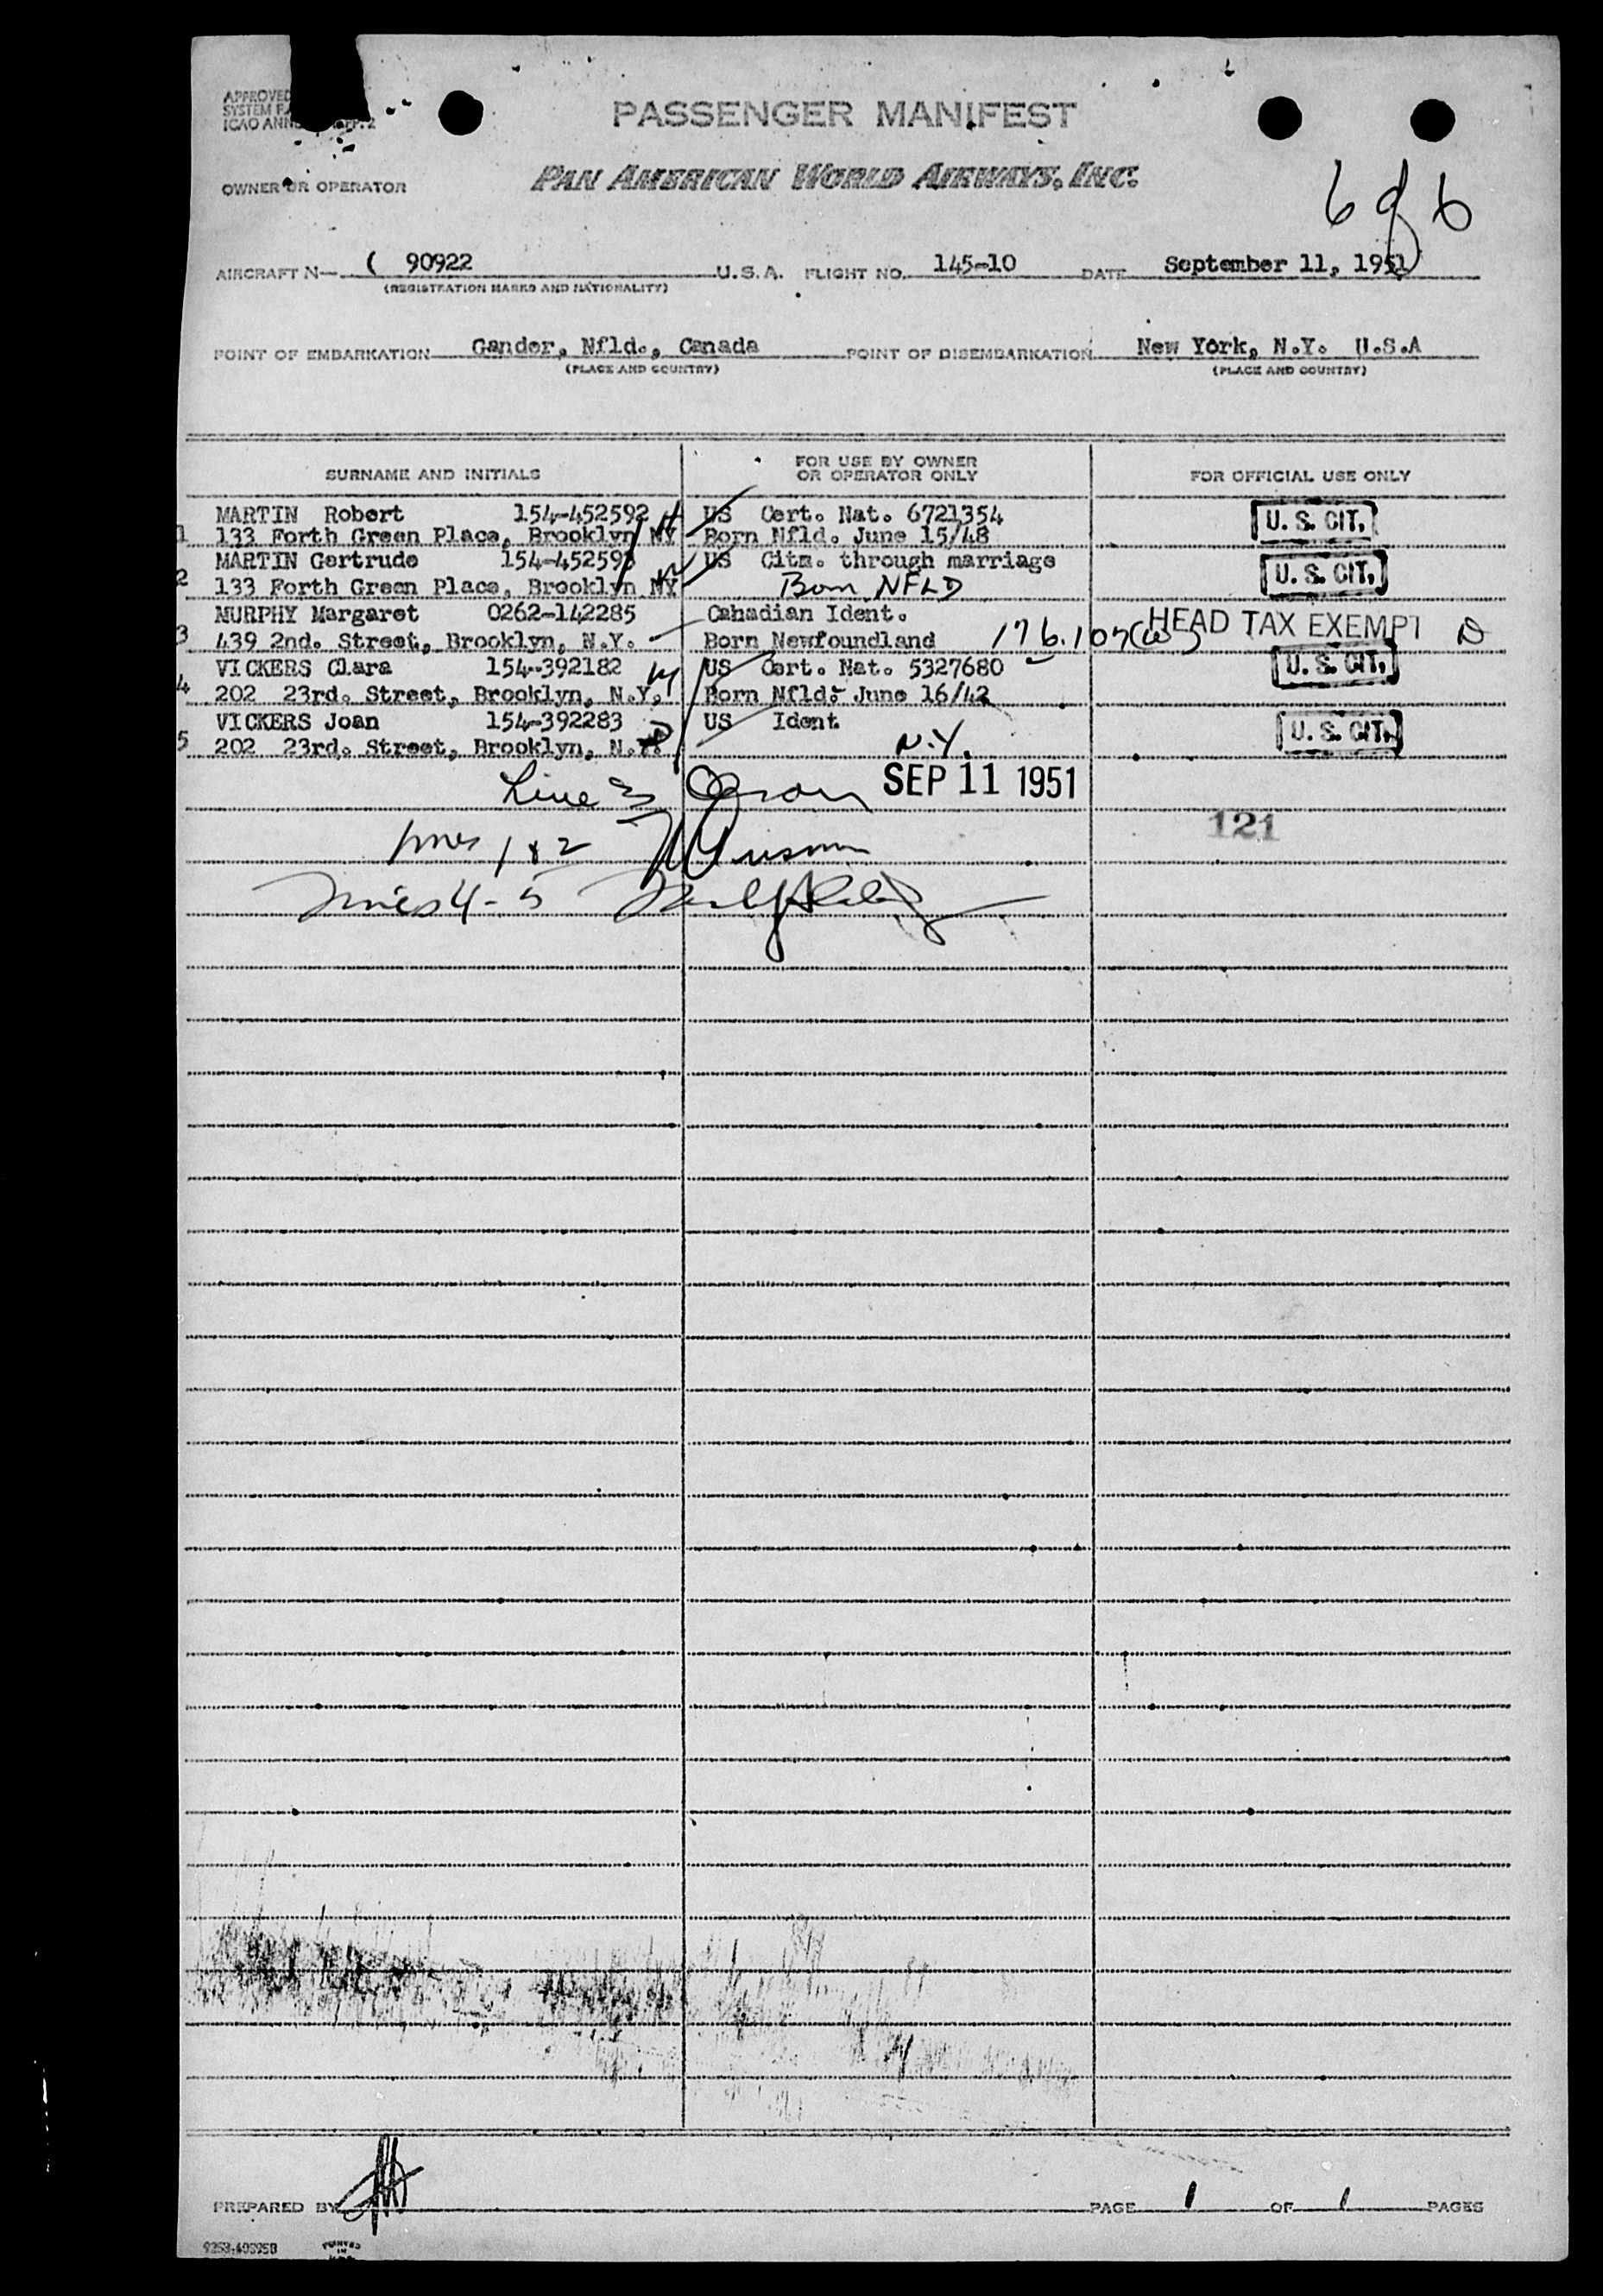 APPROVED
SYSTEM
ICAO
PASSENGER MANIFEST
OWNER OR OPERATOR
PAN AMERICAN WORLD AIRWAYS, INC.
6 of 6
AIRCRAFT N— ( 90922 U.S.A. FLIGHT NO. 145-10 DATE September 11, 1951
(REGISTRATION MARKS AND NATIONALITY)
POINT OF EMBARKATION Gander, Nfld., Canada POINT OF DISEMBARKATION New York, N.Y. U.S.A
(PLACE AND COUNTRY) (PLACE AND COUNTRY)
SURNAME AND INITIALS FOR USE BY OWNER OR OPERATOR ONLY FOR OFFICIAL USE ONLY
MARTIN Robert 154-452592 US Cert. Nat. 6721354 U. S. CIT.
1 133 Forth Green Place, Brooklyn NY Born Nfld. June 15/48
MARTIN Gertrude 154-452593 US Citz. through marriage U. S. CIT.
2 133 Forth Green Place, Brooklyn NY Born NFLD
MURPHY Margaret 0262-142285 Canadian Ident. HEAD TAX EXEMPT
3 439 2nd. Street, Brooklyn, N.Y. Born Newfoundland 176.107
VICKERS Clara 154-392182 US Cert. Nat. 5327680 U. S. CIT.
4 202 23rd. Street, Brooklyn, N.Y. Born Nfld. June 16/42
VICKERS Joan 154-392283 US Ident U. S. CIT.
5 202 23rd. Street, Brooklyn, N.Y. N.Y.
Line 3 SEP 11 1951
121
lines 1 & 2
lines 4-5
PREPARED BY PAGE 1 OF 1 PAGES
PRINTED
IN